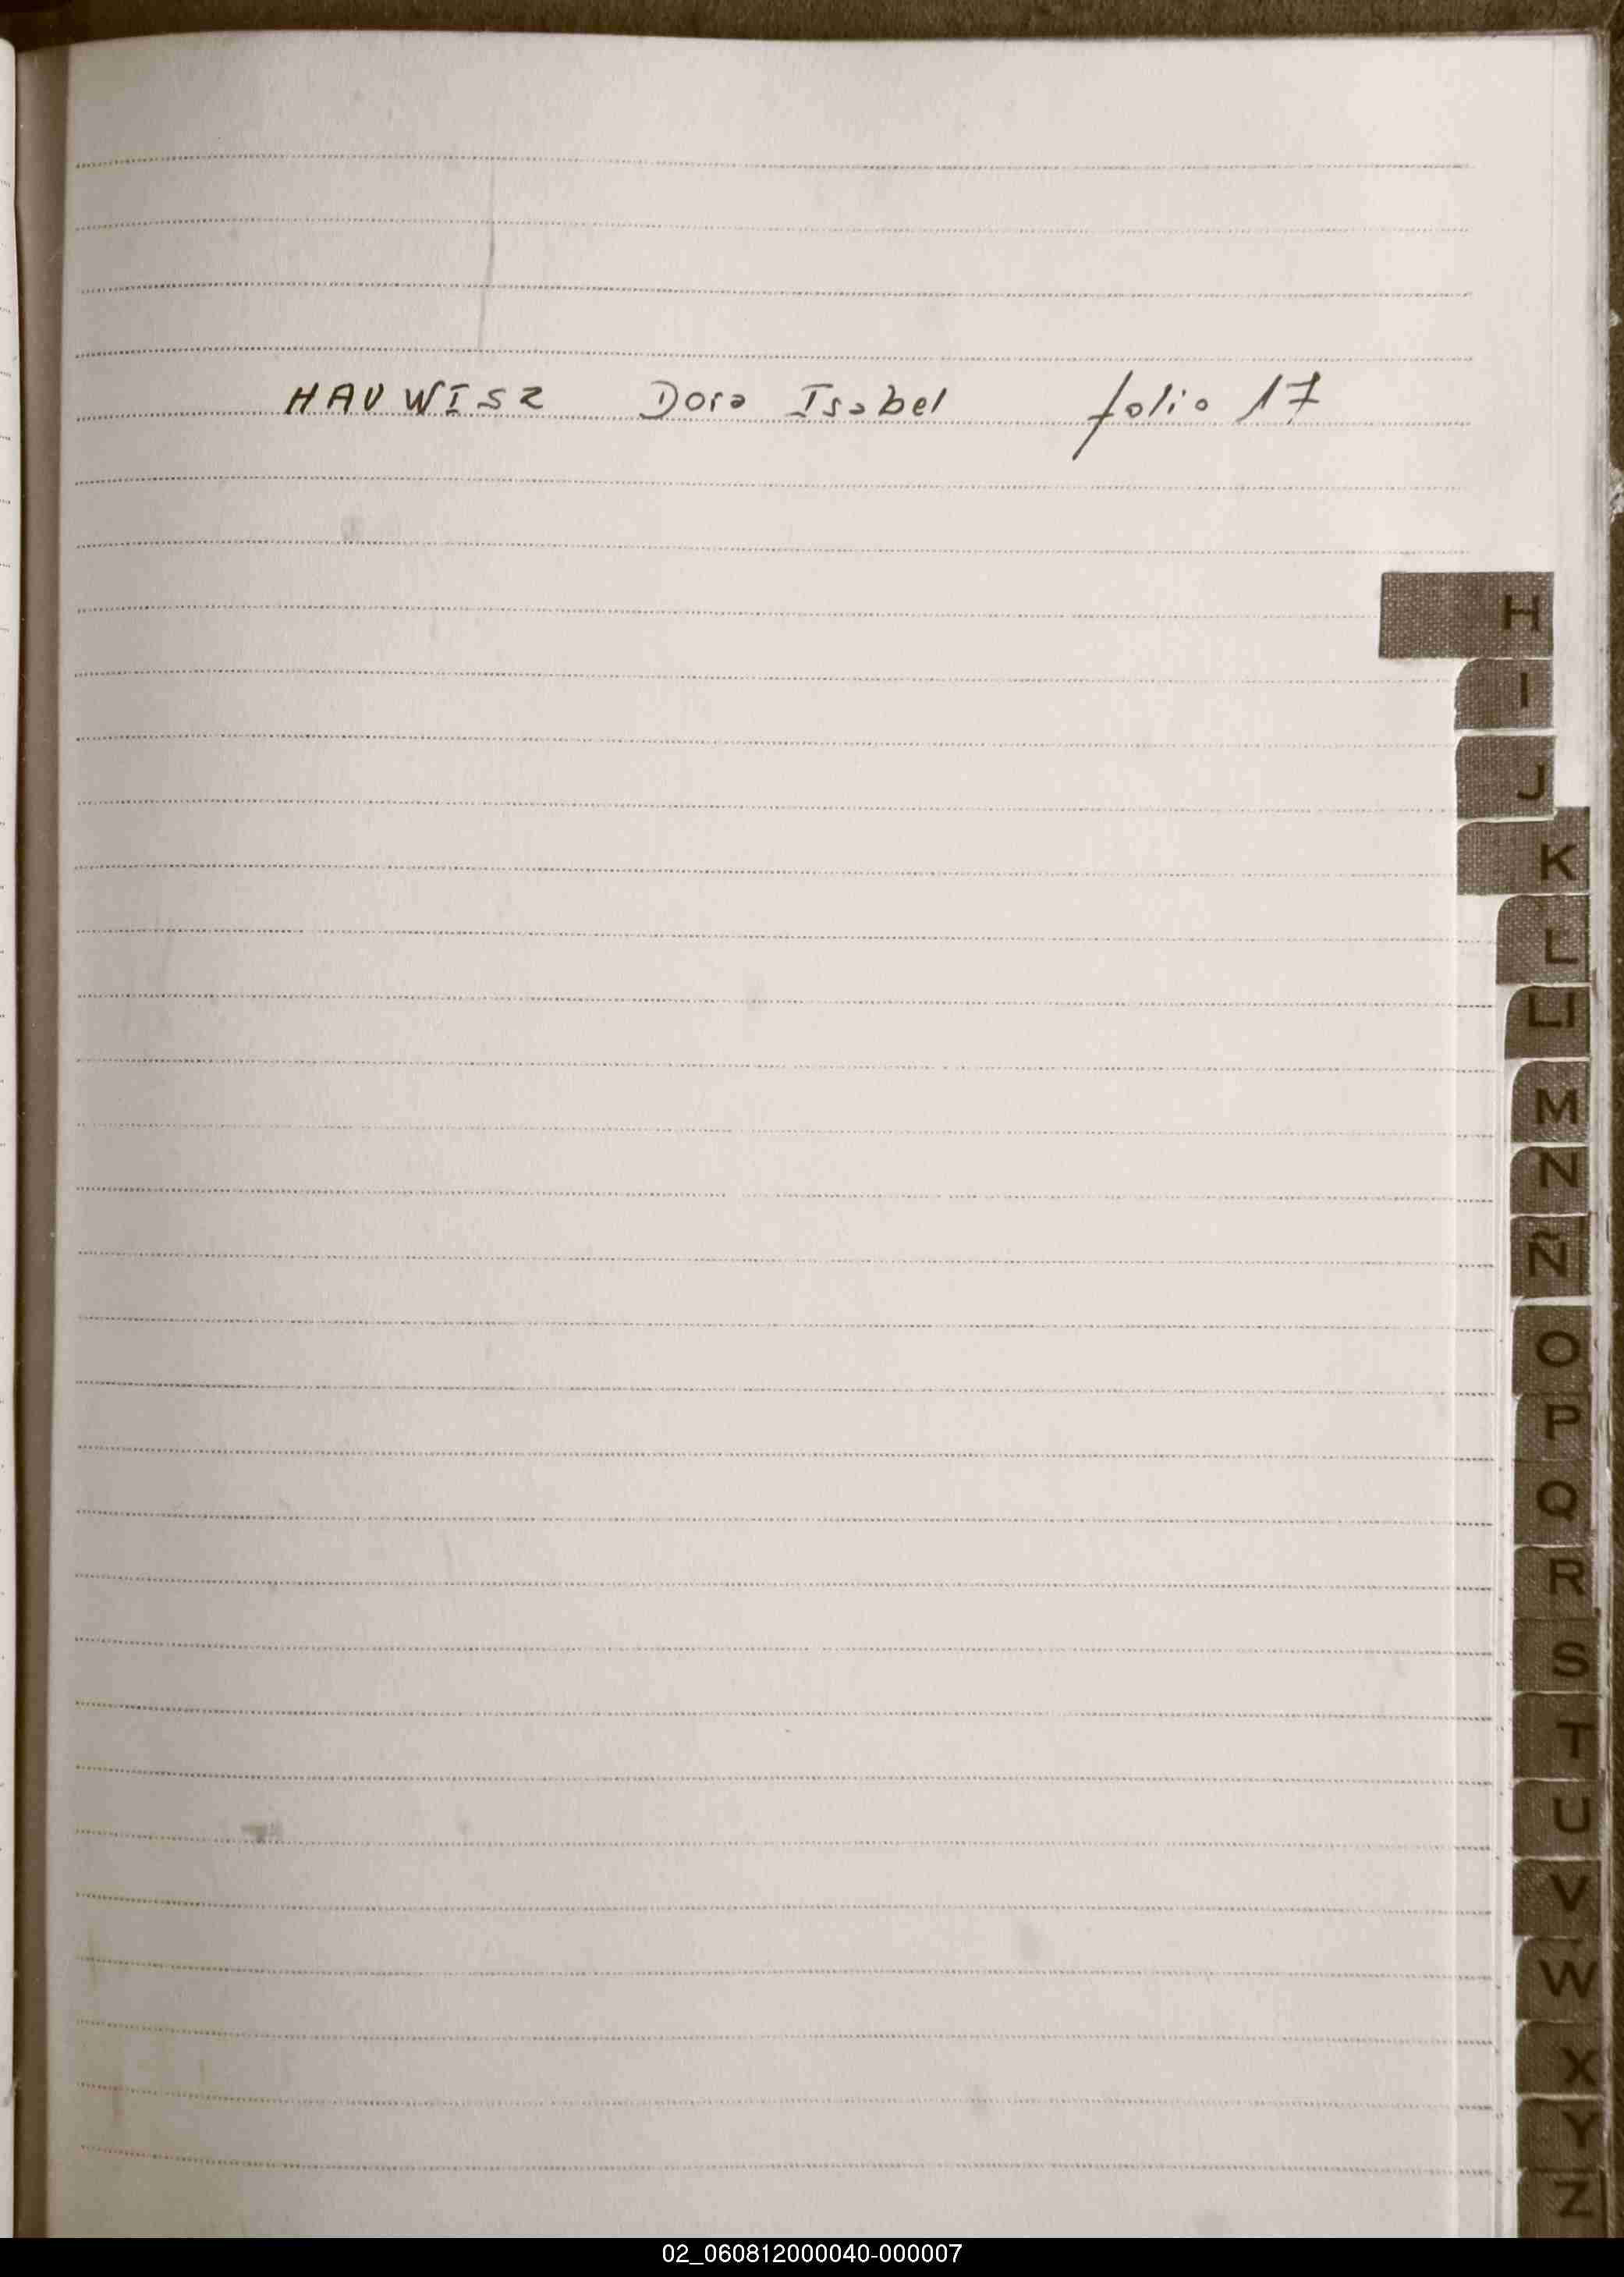 HAUWISZ Dora Isabel folio 17
H
I
J
K
L
Ll
M
N
Ñ
O
P
Q
R
S
T
U
V
W
X
Y
Z
02_060812000040-000007